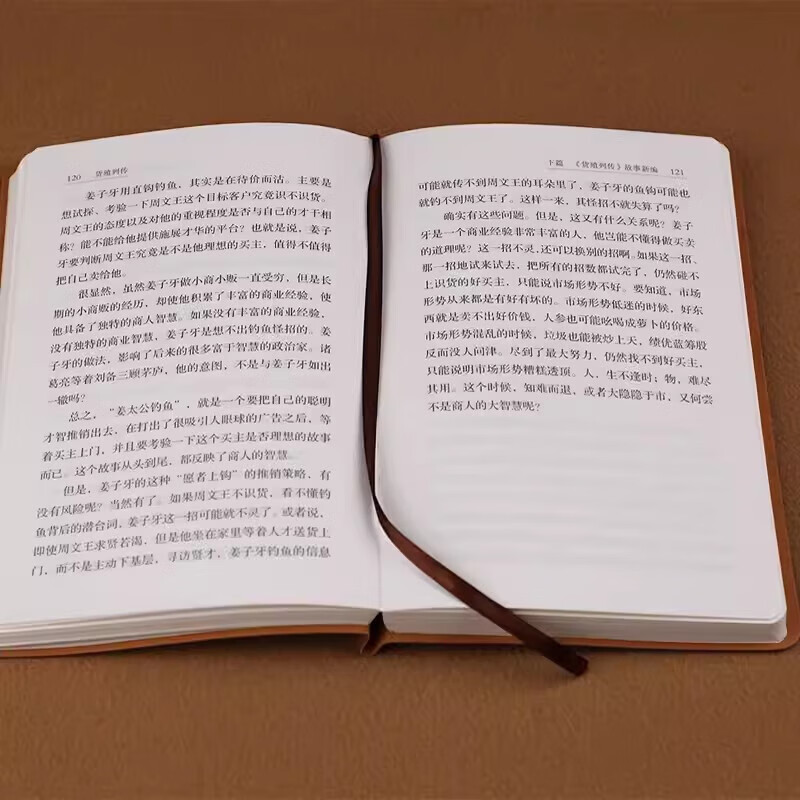 120 货殖列传
姜子牙用直钩钓鱼，其实是在待价而沽。主要是
想试探、考验一下周文王这个目标客户究竟识不识货。
周文王的态度以及对他的重视程度是否与自己的才干相
称？能不能给他提供施展才华的平台？也就是说，姜子
牙要判断周文王究竟是不是他理想的买主，值得不值得
把自己卖给他。
很显然，虽然姜子牙做小商小贩一直受穷，但是长
期的小商贩的经历，却使他积累了丰富的商业经验，使
他具备了独特的商人智慧。如果没有丰富的商业经验，
没有独特的商业智慧，姜子牙是想不出钓鱼怪招的。姜
子牙的做法，影响了后来的很多富于智慧的政治家。诸
葛亮等着刘备三顾茅庐，他的意图，不是与姜子牙如出
一辙吗？
总之，“姜太公钓鱼”，就是一个要把自己的聪明
才智推销出去，在打出了很吸引人眼球的广告之后，等
着买主上门，并且要考验一下这个买主是否理想的故事
而已。这个故事从头到尾，都反映了商人的智慧。
但是，姜子牙的这种“愿者上钩”的推销策略，有
没有风险呢？当然有了。如果周文王不识货，看不懂钓
鱼背后的潜台词，姜子牙这一招可能就不灵了。或者说，
即使周文王求贤若渴，但是他坐在家里等着人才送货上
门，而不是主动下基层，寻访贤才，姜子牙钓鱼的信息
下篇 《货殖列传》故事新编 121
可能就传不到周文王的耳朵里了，姜子牙的鱼钩可能也
就钓不到周文王了。这样一来，其怪招不就失算了吗？
确实有这些问题。但是，这又有什么关系呢？姜子
牙是一个商业经验非常丰富的人，他岂能不懂得做买卖
的道理呢？这一招不灵，还可以换别的招啊。如果这一招、
那一招地试来试去，把所有的招数都试完了，仍然碰不
上识货的好买主，只能说市场形势不好。要知道，市场
形势从来都是有好有坏的。市场形势低迷的时候，好东
西就是卖不出好价钱，人参也可能吆喝成萝卜的价格。
市场形势混乱的时候，垃圾也能被炒上天，绩优蓝筹股
反而没人问津。尽到了最大努力，仍然找不到好买主，
只能说明市场形势糟糕透顶。人，生不逢时；物，难尽
其用。这个时候，知难而退，或者大隐隐于市，又何尝
不是商人的大智慧呢？